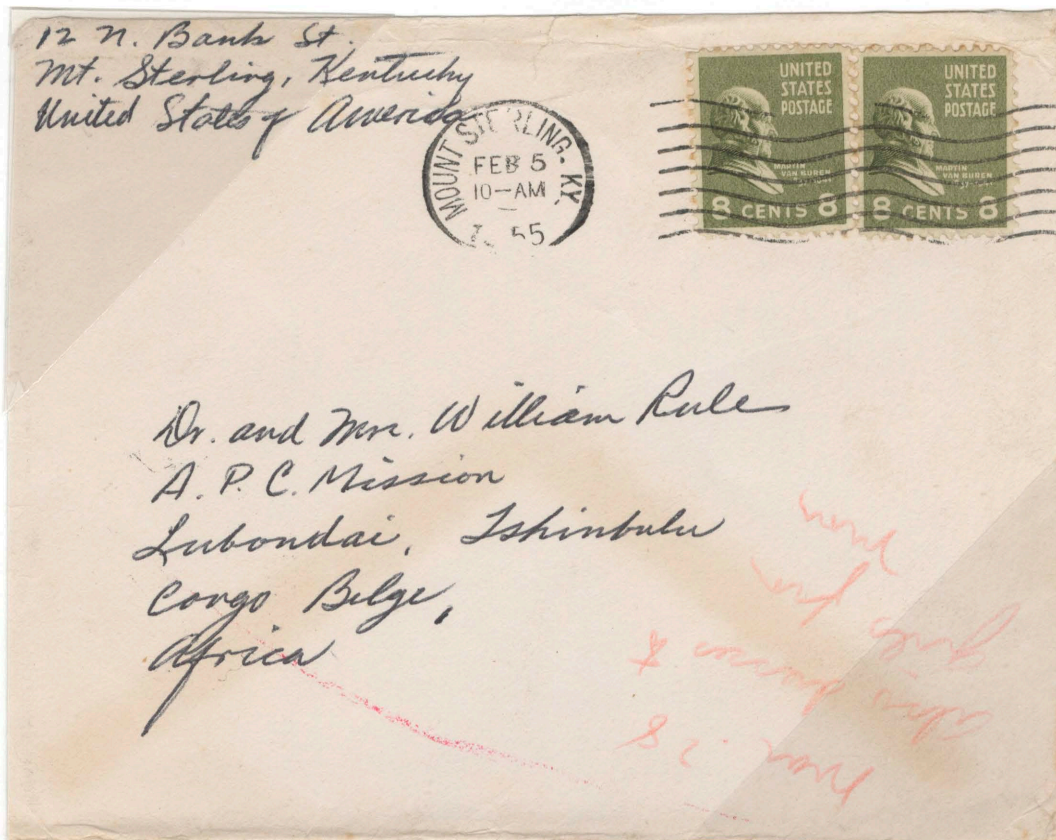 12 N. Bank St.
Mt. Sterling, Kentucky
United States of America
MOUNT STERLING. KY.
FEB 5
10-AM
55
UNITED
STATES
POSTAGE
MARTIN
VAN BUREN
8 CENTS 8
UNITED
STATES
POSTAGE
MARTIN
VAN BUREN
8 CENTS 8
Dr. and Mrs. William Rule
A. P. C. Mission
Lubondai, Tshinbulu
Congo Belge,
Africa
Mar. 28
girls from